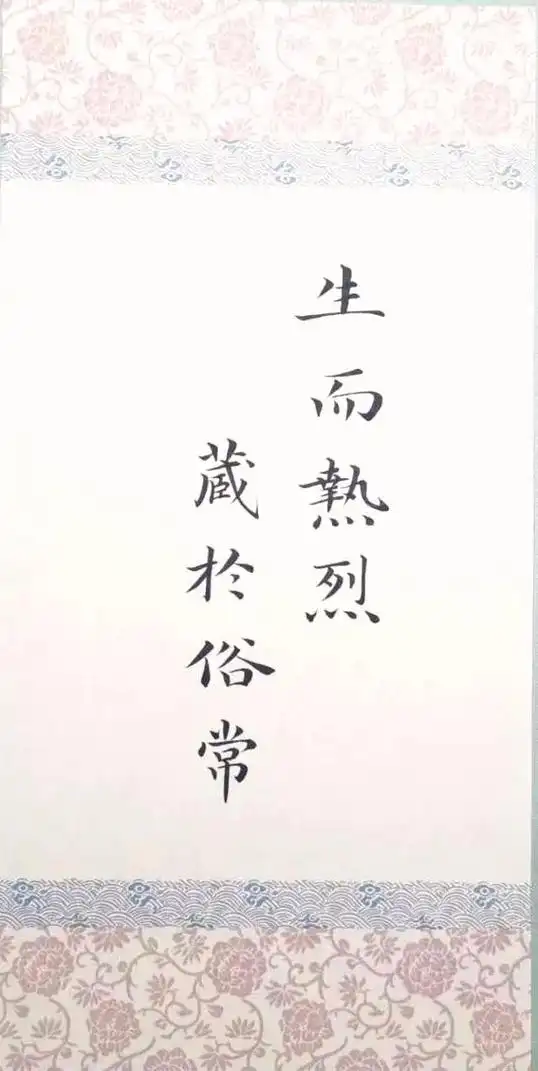 生而熱烈
蔵於俗常